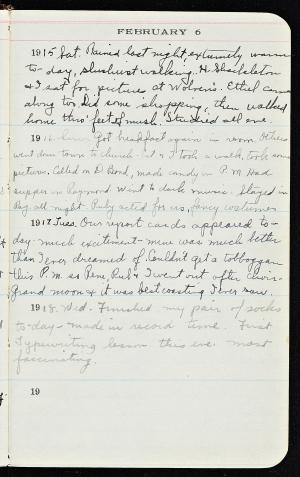 FEBRUARY 6
1915 Sat. Rained last night, extremely warm
to-day, slushiest walking. H. Shackleton
& I sat for picture at Wolver's. Ethel came
along too. Did some shopping, then walked
home thro' feet of mush. Studied all eve.
1916 breakfast again in room. Others
went down town to church but & I took a walk, took some
picture. Called on D. Bond, made candy in P.M. Had
supper in Raymond. Went to dark music. Stayed in
Ray. all night. Ruby acted for us, fancy costumes
1917 Tues. Our report cards appeared to-
day - much excitement - mine was much better
than I ever dreamed of. Couldn't get a toboggan
this P.M. so Rene, Rub & I went out after
Grand moon & it was best coasting I ever saw.
1918. Wed. Finished my pair of socks
to-day - made in record time. First
Typewriting lesson this eve. most
fascinating.
19